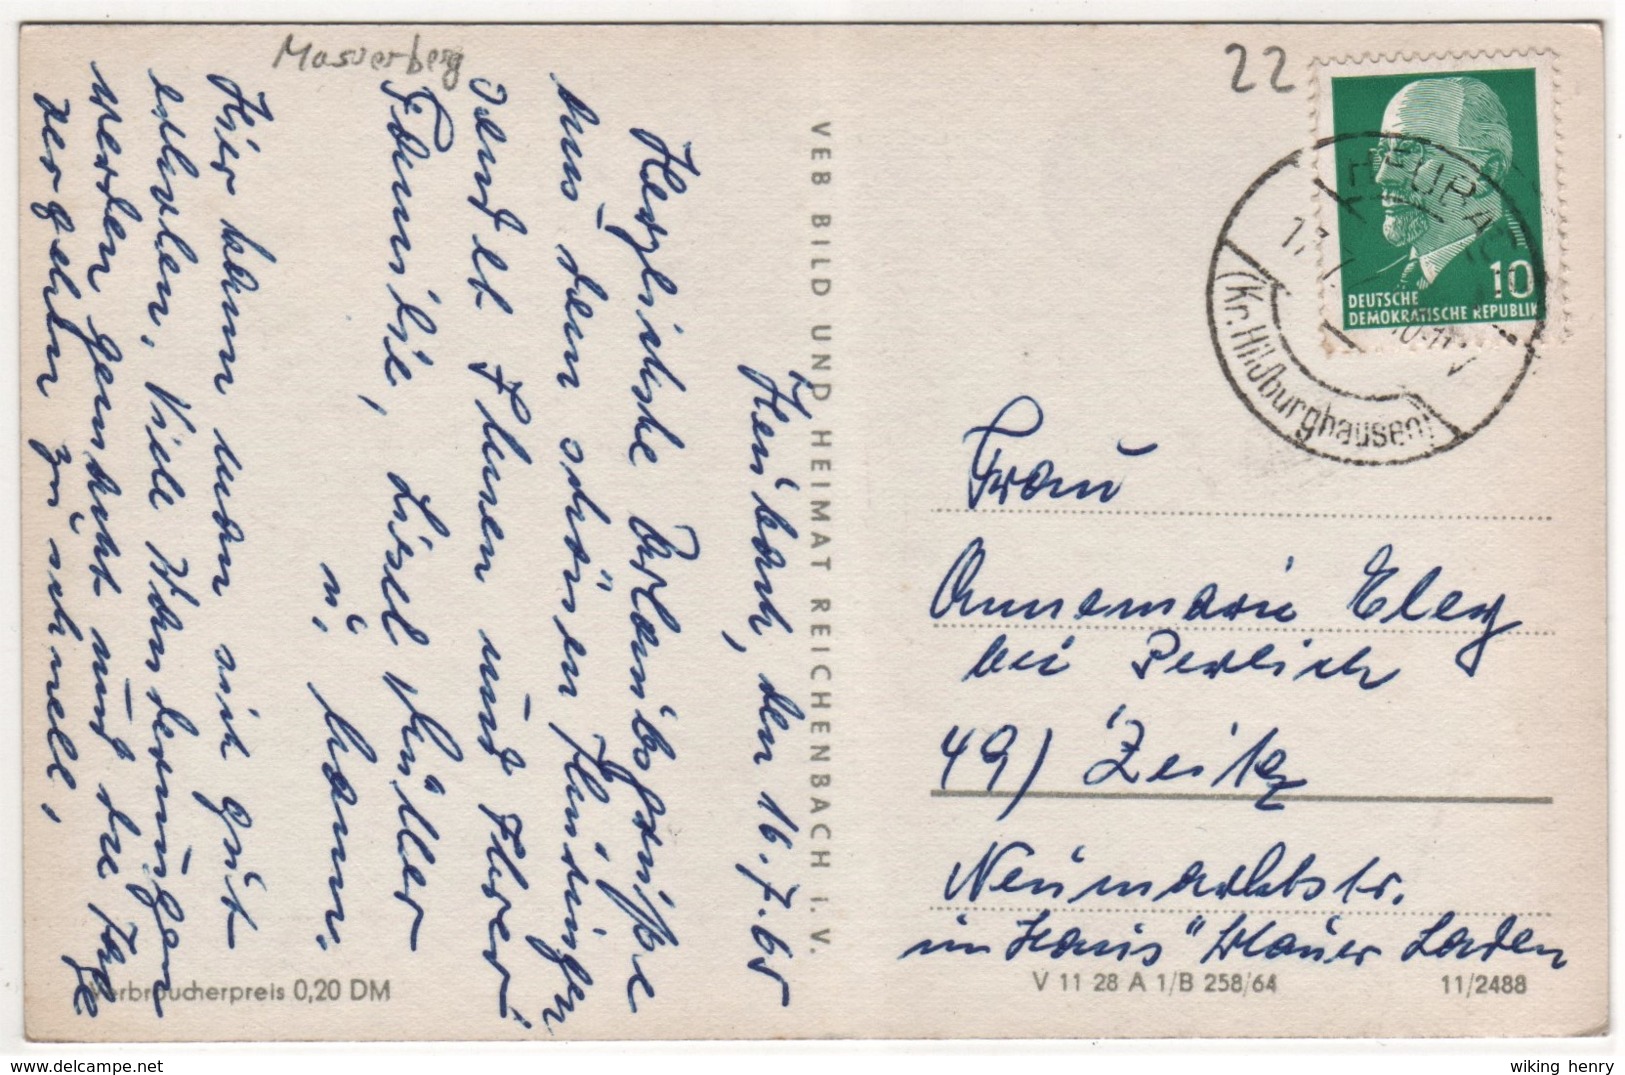 Masserberg
22
Heubach, den 16.7.65
Herzliche Urlaubsgrüße
aus dem schönen Thüringen
sendet Ihnen und Ihrer
Familie, Lisel Müller
u. Mann.
Hier kann man sich gut
erholen. Viele Wanderungen
werden gemacht und die Tage
vergehen zu schnell.
VEB BILD UND HEIMAT REICHENBACH I. V.
HEUBACH
10-11
(Kr. Hildburghausen)
10
DEUTSCHE
DEMOKRATISCHE REPUBLIK
Frau
Annemarie Eley
bei Perlich
49) Zeitz
Neumarktstr.
im Haus "Blauer Laden
Verbraucherpreis 0,20 DM
V 11 28 A 1/B 258/64
11/2488
wiking henry